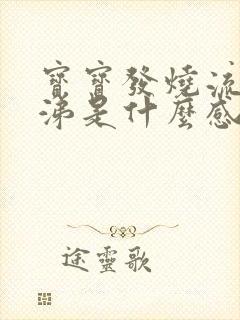 寶寶發燒流
涕是什麼感
途靈歌